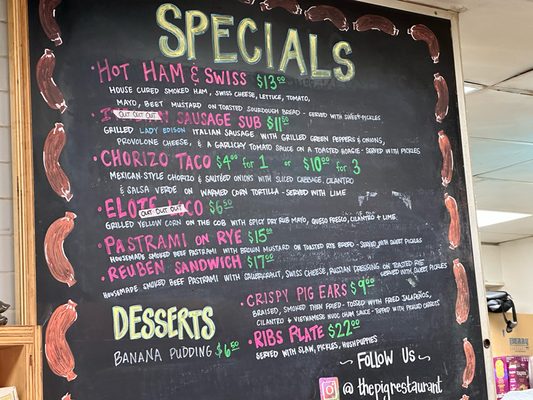 SPECIALS
• HOT HAM & SWISS $13.00
HOUSE CURED SMOKED HAM, SWISS CHEESE, LETTUCE, TOMATO,
MAYO, BEET MUSTARD ON TOASTED SOURDOUGH BREAD - SERVED WITH SWEET PICKLES
OUT OUT OUT SAUSAGE SUB $11.50
GRILLED LADY EDISON ITALIAN SAUSAGE WITH GRILLED GREEN PEPPERS & ONIONS,
PROVOLONE CHEESE, & A GARLICKY TOMATO SAUCE ON A TOASTED HOAGIE - SERVED WITH PICKLES
• CHORIZO TACO $4.00 for 1 or $10.00 for 3
MEXICAN-STYLE CHORIZO & SAUTÉED ONIONS WITH SLICED CABBAGE, CILANTRO
& SALSA VERDE ON WARMED CORN TORTILLA - SERVED WITH LIME
• ELOTE OUT OUT OUT $6.50
GRILLED YELLOW CORN ON THE COB WITH SPICY DRY RUB MAYO, QUESO FRESCO, CILANTRO + LIME.
• PASTRAMI ON RYE $15.00
HOUSEMADE SMOKED BEEF PASTRAMI WITH BROWN MUSTARD ON TOASTED RYE BREAD - SERVED WITH SWEET PICKLES
• REUBEN SANDWICH $17.00
HOUSEMADE SMOKED BEEF PASTRAMI WITH SAUERKRAUT, SWISS CHEESE, RUSSIAN DRESSING ON TOASTED RYE SERVED WITH SWEET PICKLES
• CRISPY PIG EARS $9.00
BRAISED, SMOKED THEN FRIED - TOSSED WITH FRIED JALAPEÑOS,
CILANTRO & VIETNAMESE NUOC CHAM SAUCE - TOPPED WITH PICKLED CARROTS
• RIBS PLATE $22.00
SERVED WITH SLAW, PICKLES, HUSHPUPPIES
DESSERTS
BANANA PUDDING $6.50
~ FOLLOW US ~
@ thepigrestaurant